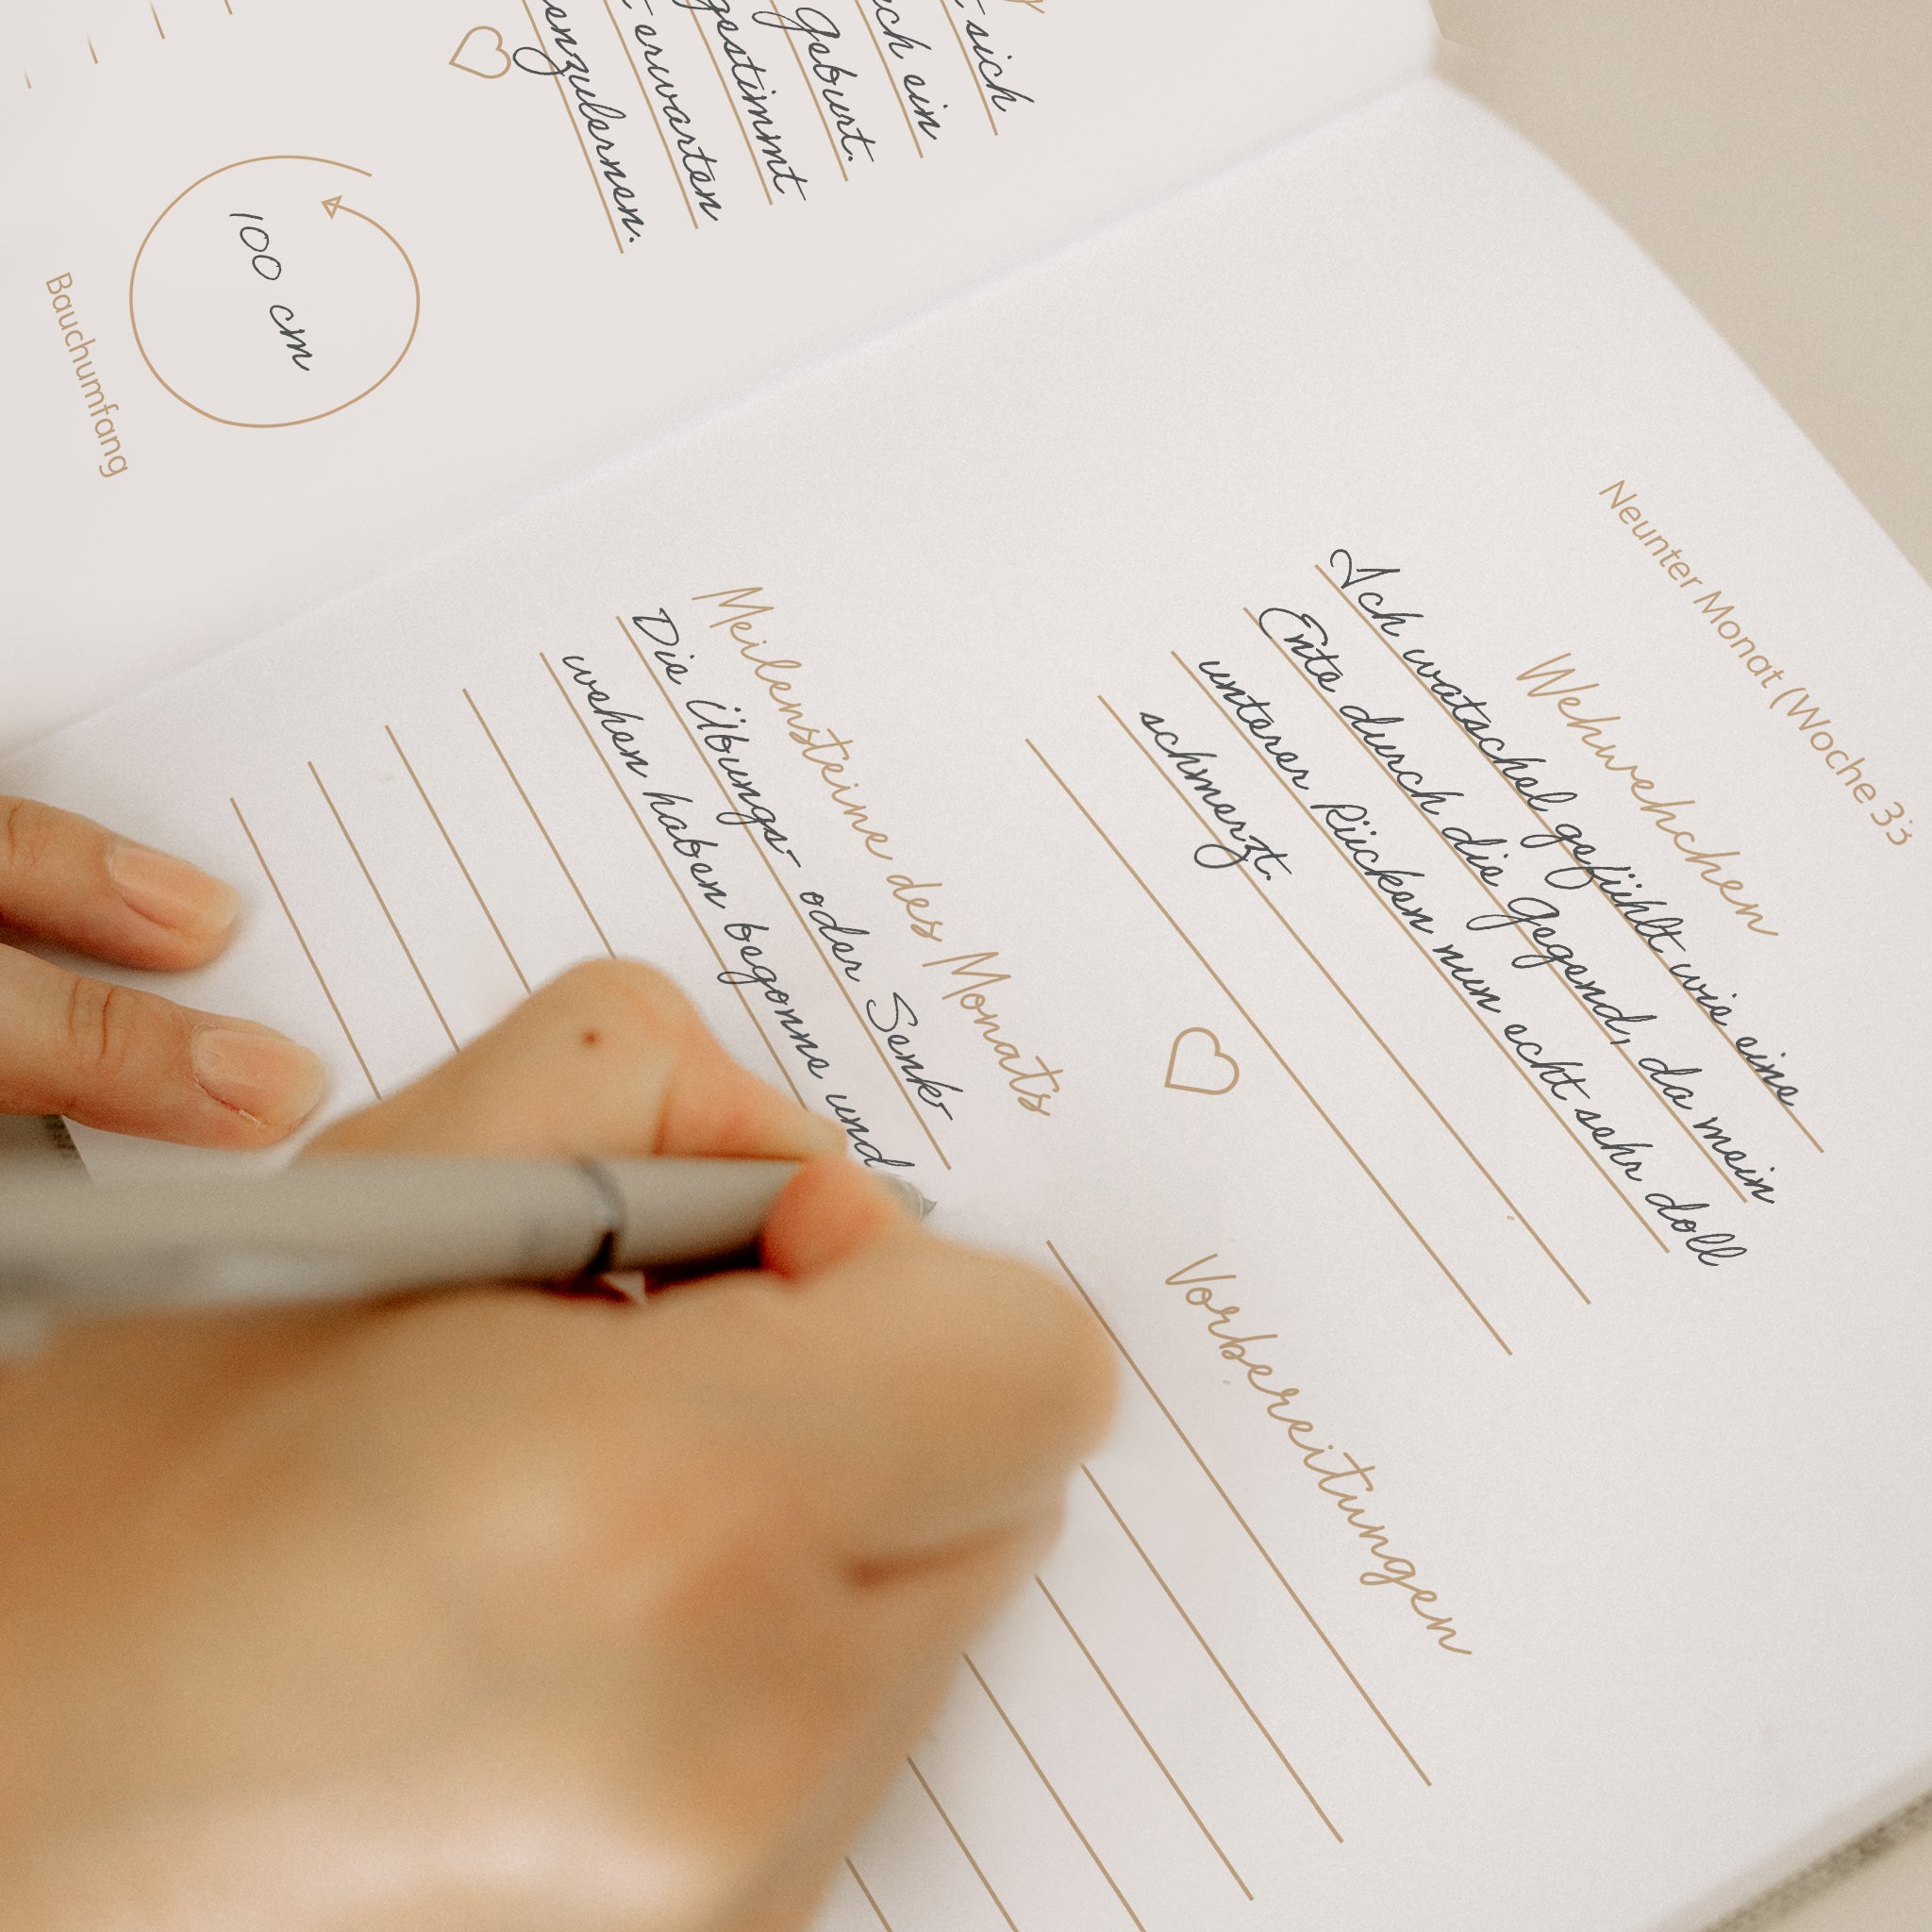 sich
ein
Geburt.
gestimmt
erwarten
Bauchumfang
100 cm
Neunter Monat (Woche 33
Wehwehchen
Ich watschel gefühlt wie eine
Ente durch die Gegend, da mein
unterer Rücken nun echt sehr doll
schmerzt.
Meilensteine des Monats
Die Übungs- oder Senk-
wehen haben begonne und
Vorbereitungen